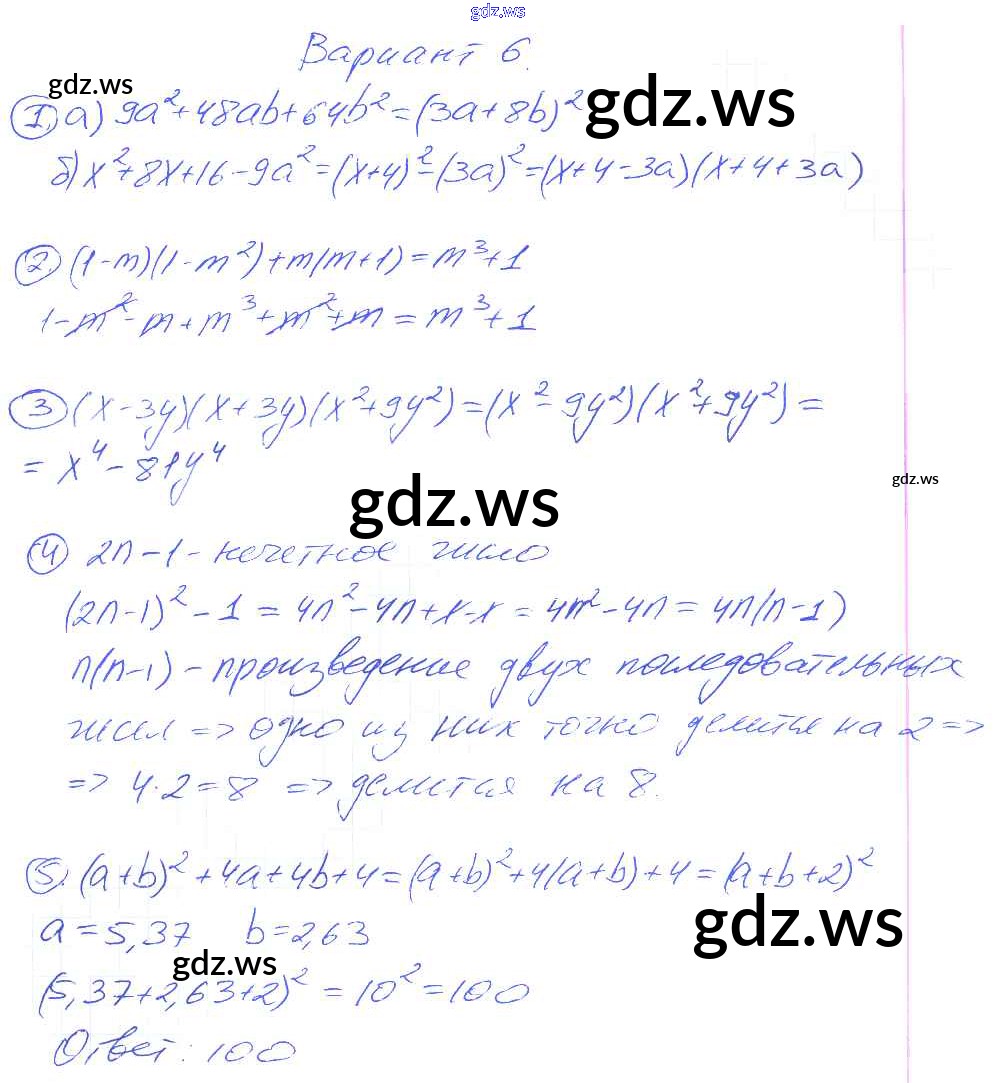 gdz.ws
Вариант 6.
gdz.ws
1. а) 9a²+48ab+64b²=(3a+8b)²
gdz.ws
б) x²+8x+16-9a²=(x+4)²-(3a)²=(x+4-3a)(x+4+3a)
2. (1-m)(1-m²)+m(m+1)=m³+1
1-m²-m+m³+m²+m=m³+1
3 (x-3y)(x+3y)(x²+9y²)=(x²-9y²)(x²+9y²)=
=x⁴-81y⁴
gdz.ws
gdz.ws
4 2n-1-нечетное число
(2n-1)²-1=4n²-4n+1-1=4n²-4n=4n(n-1)
n(n-1)-произведение двух последовательных
чисел => одно из них точно делится на 2 =>
=> 4·2=8 => делится на 8.
5. (a+b)²+4a+4b+4=(a+b)²+4(a+b)+4=(a+b+2)²
gdz.ws
a=5,37 b=2,63
gdz.ws
(5,37+2,63+2)²=10²=100
Ответ: 100